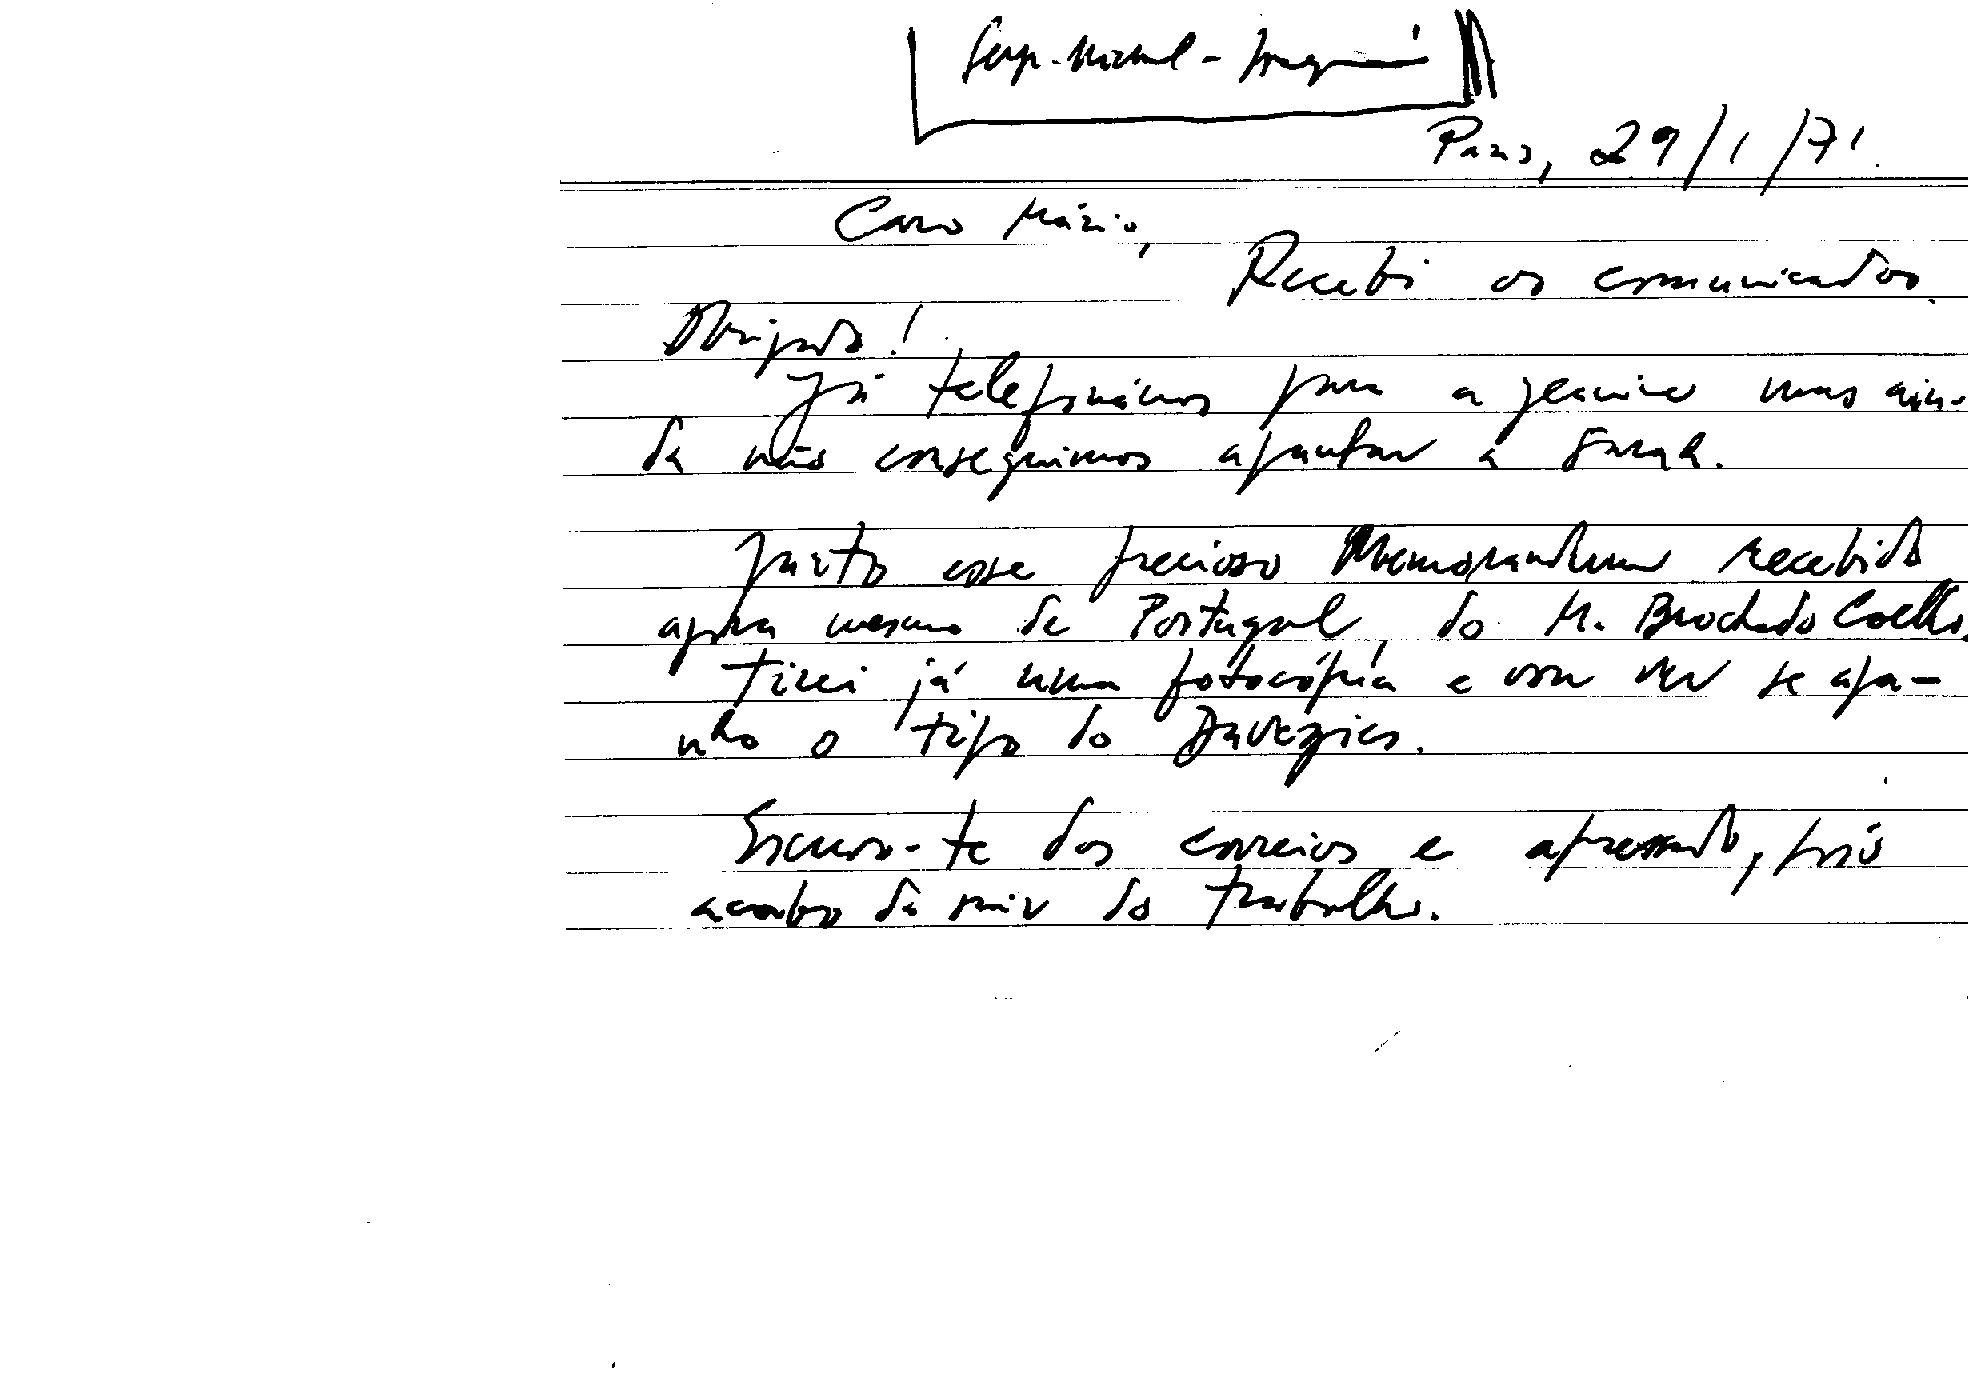 Paris, 29/1/71.
Caro Mário,
Recebi os comunicados.
Obrigado!
Já telefonámos para a mas ain-
da não conseguimos apanhar a Sarah.
Junto esse precioso Memorandum recebido
agora mesmo de Portugal, do M. Brochado Coelho.
Tirei já uma fotocópia e vou ver se apa-
nho o tipo do Davezies.
Escrevo-te dos correios e apressado, pois
acabo de sair do trabalho.